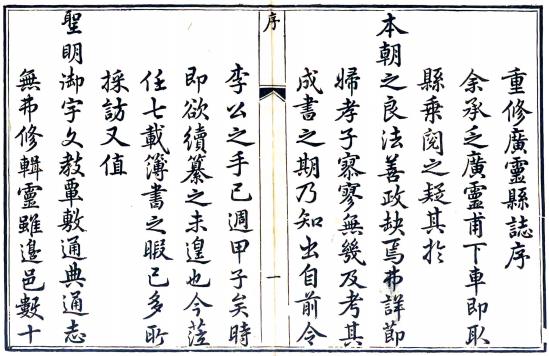 重修廣靈縣誌序
余承乏廣靈甫下車即取
縣乘閱之疑其於
本朝之良法善政缺焉弗詳節
婦孝子寥寥無幾及考其
成書之期乃知出自前令
序
一
李公之手已週甲子矣時
即欲續纂之未遑也今蒞
任七載簿書之暇已多所
採訪又值
聖明御宇文教覃敷通典通志
無弗修輯靈雖邊邑數十